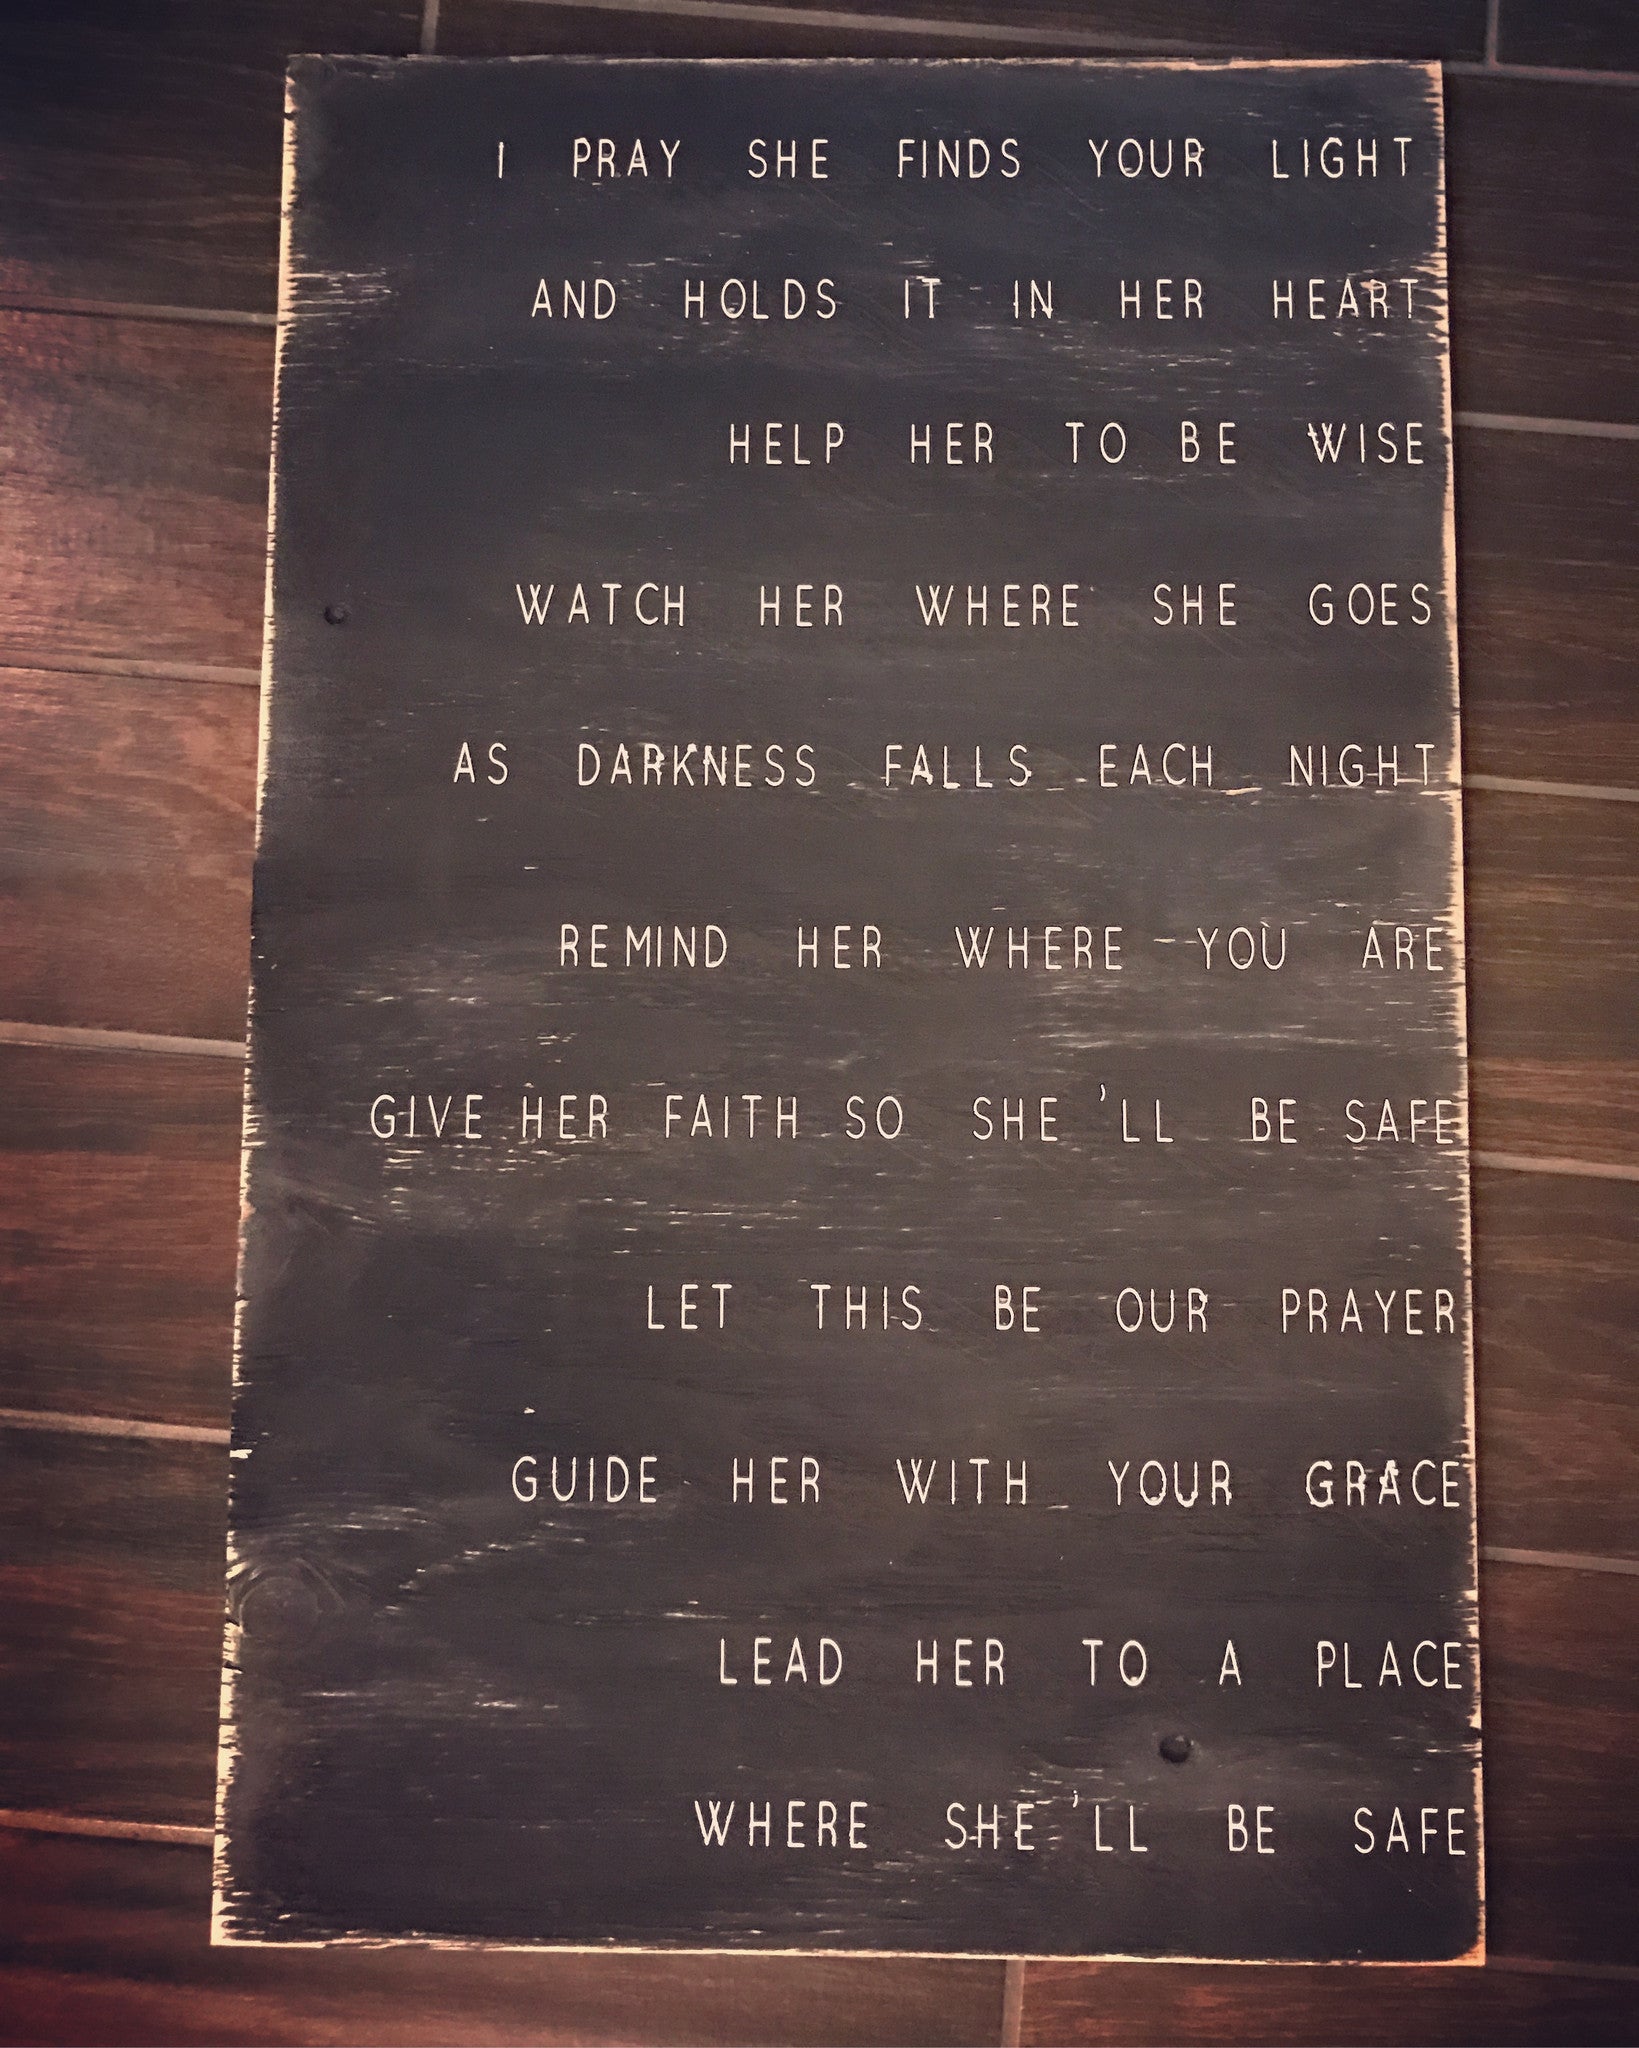 I PRAY SHE FINDS YOUR LIGHT
AND HOLDS IT IN HER HEART
HELP HER TO BE WISE
WATCH HER WHERE SHE GOES
AS DARKNESS FALLS EACH NIGHT
REMIND HER WHERE YOU ARE
GIVE HER FAITH SO SHE'LL BE SAFE
LET THIS BE OUR PRAYER
GUIDE HER WITH YOUR GRACE
LEAD HER TO A PLACE
WHERE SHE'LL BE SAFE